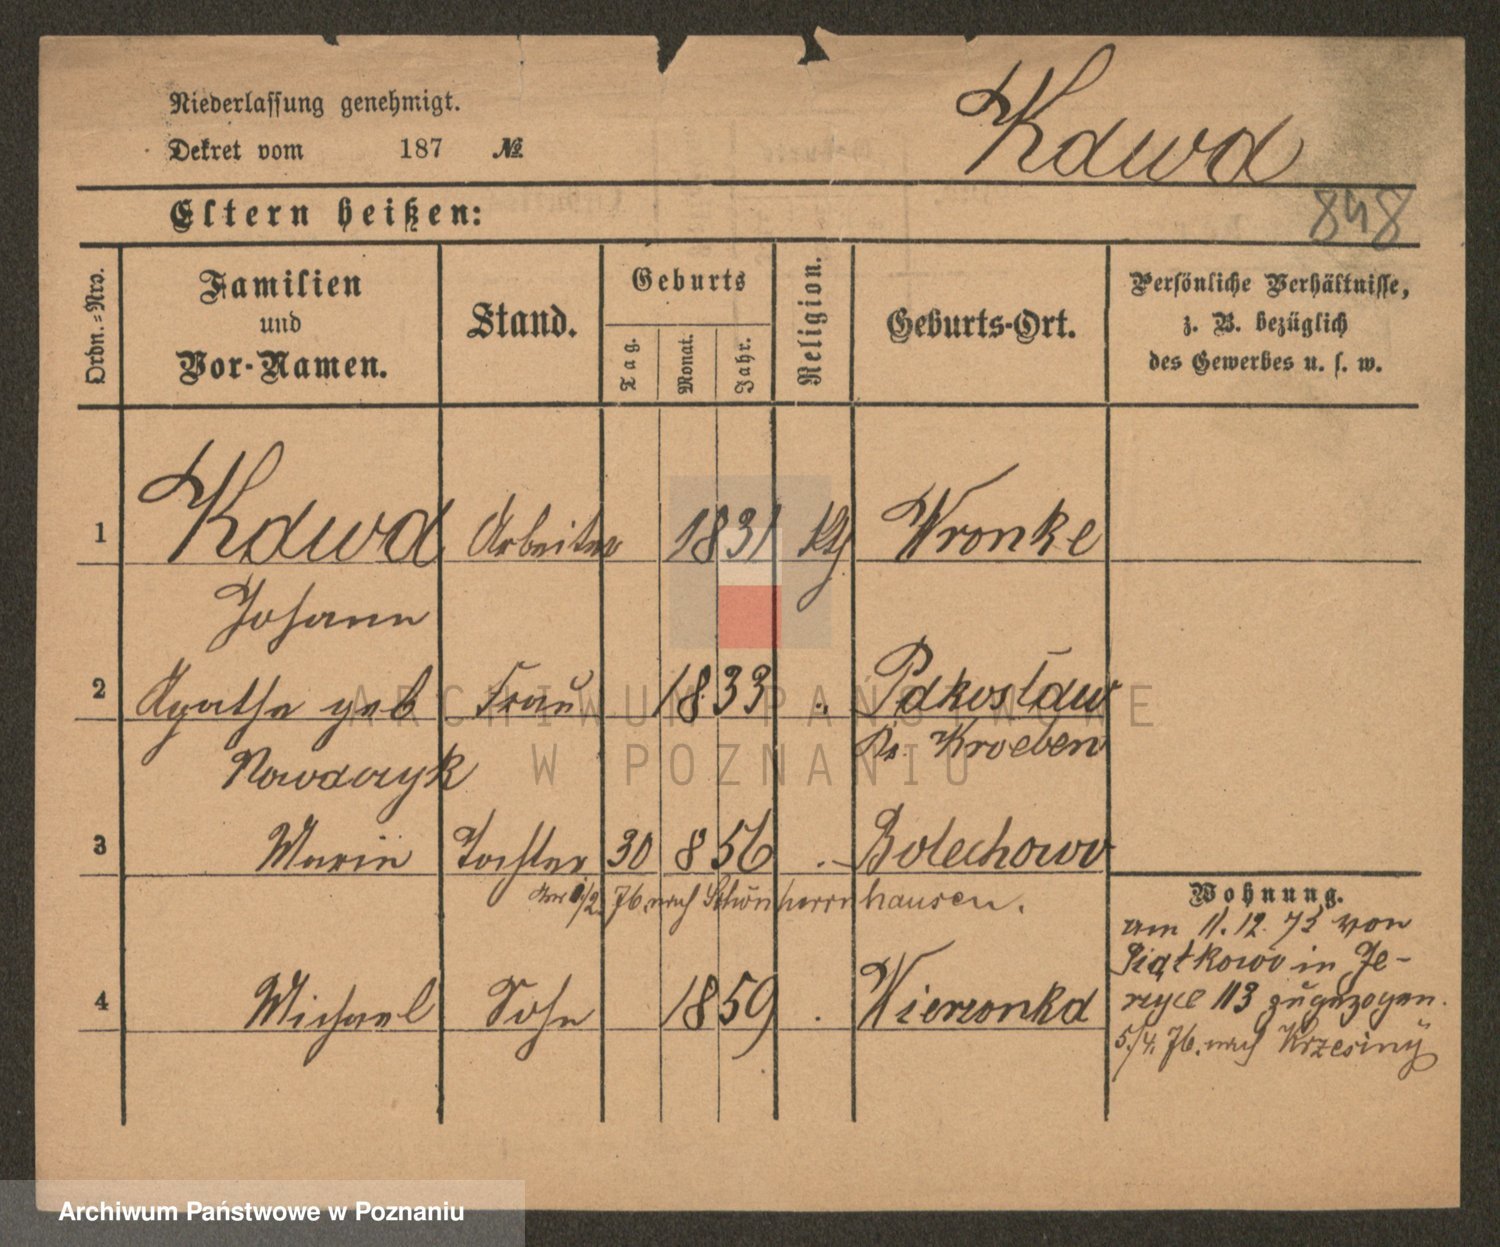 Niederlassung genehmigt.
Kawa
Dekret vom 187 №
848
Eltern heißen:
Ordn.-Nro.
Familien
und
Vor-Namen.
Stand.
Geburts
Tag.
Monat.
Jahr.
Religion.
Geburts-Ort.
Persönliche Verhältnisse,
z. B. bezüglich
des Gewerbes u. s. w.
1 Kawa Arbeiter 1831 Kth Wronke
Johann
2 Agathe geb Frau 1833 " Pakosław
Nowaczyk Kr. Kroeben
3 Marie Tochter 30 8 56 . Bolechowo
2. 76. nach Schönherrnhausen.
4 Michael Sohn 1859 . Wierzonka
Wohnung.
am 11. 12. 75 von
Piątkowo in Je-
rzyce 113 zugezogen.
5./4. 76. nach Krzesiny
ARCHIWUM PAŃSTWOWE
W POZNANIU
Archiwum Państwowe w Poznaniu